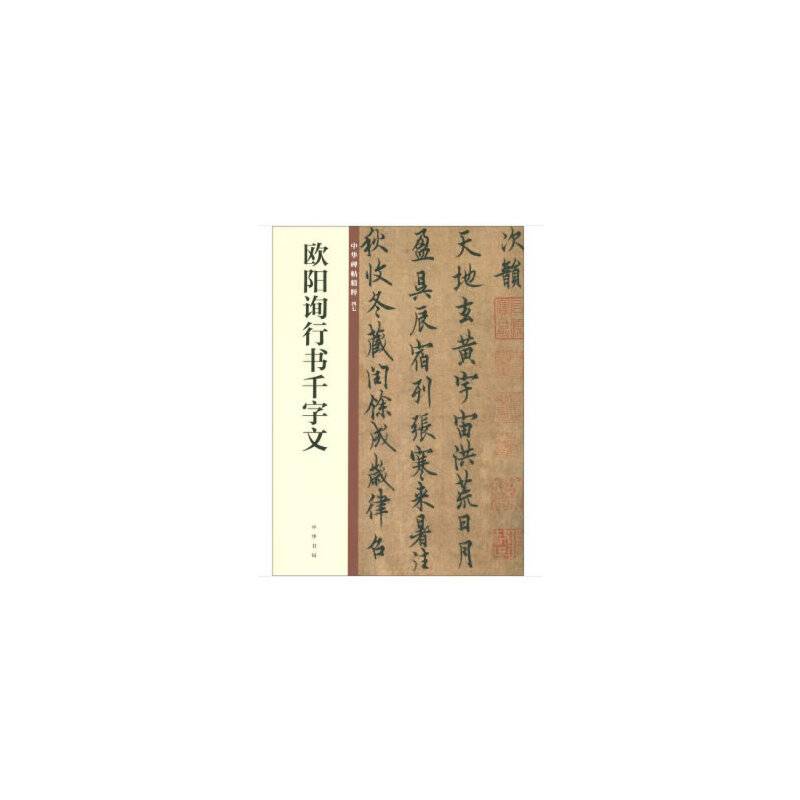 欧阳询行书千字文
中华碑帖精粹
中华书局
次韻
天地玄黃宇宙洪荒日月
盈昃辰宿列張寒来暑往
秋收冬藏閏餘成歲律召